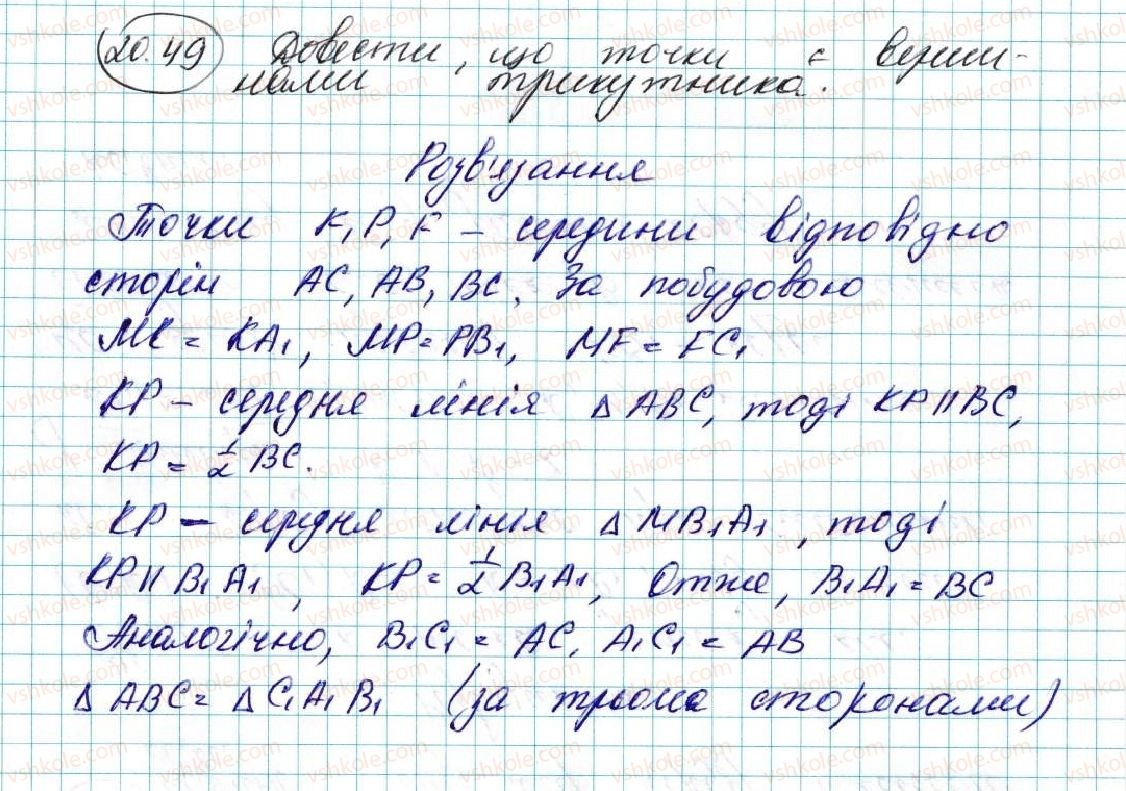 20.49 Довести, що точки є верши-
нами трикутника.
Розв'язання
Точки K, P, F – середини відповідно
сторін AC, AB, BC. За побудовою
MK = KA₁, MP = PB₁, MF = FC₁
KP – середня лінія △ ABC, тоді KP || BC,
KP = 1/2 BC.
KP – середня лінія △ MB₁A₁, тоді
KP || B₁A₁, KP = 1/2 B₁A₁, Отже, B₁A₁ = BC
Аналогічно, B₁C₁ = AC, A₁C₁ = AB
△ ABC = △ C₁A₁B₁ (за трьома сторонами)